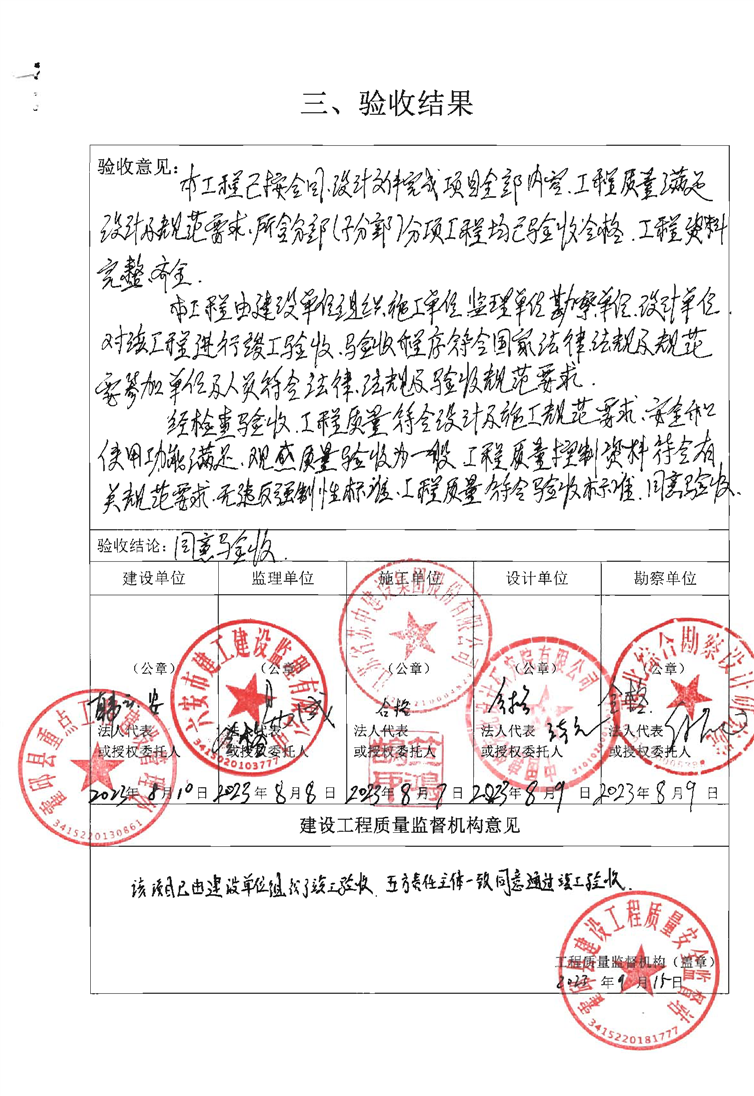 三、验收结果
验收意见:
本工程已按合同、设计文件完成项目全部内容、工程质量满足
设计及规范要求、所含分部(子分部)分项工程均已验收合格、工程资料
完整、齐全.
本工程由建设单位组织、施工单位、监理单位、勘察单位、设计单位、
对该工程进行竣工验收、验收程序符合国家法律法规及规范
要参加单位及人员符合法律、法规及验收规范要求.
经检查验收、工程质量符合设计及施工规范要求、安全和
使用功能满足、观感质量验收为一般、工程质量控制资料符合有
关规范要求、无违反强制性标准、工程质量符合验收标准、同意验收.
验收结论: 同意验收.
建设单位 监理单位 施工单位 设计单位 勘察单位
(公章) (公章) (公章) (公章) (公章)
合格 合格 合格
法人代表 法人代表 法人代表 法人代表 法人代表
或授权委托人 或授权委托人 或授权委托人 或授权委托人 或授权委托人
2023年8月10日 2023年8月8日 2023年8月8日 2023年8月9日 2023年8月9日
3415220130861
3415020103777
建设工程质量监督机构意见
该项目已由建设单位组织了竣工验收、五方责任主体一致同意通过竣工验收.
霍邱县建设工程质量安全监督站
工程质量监督机构(盖章)
2023年9月15日
3415220181777